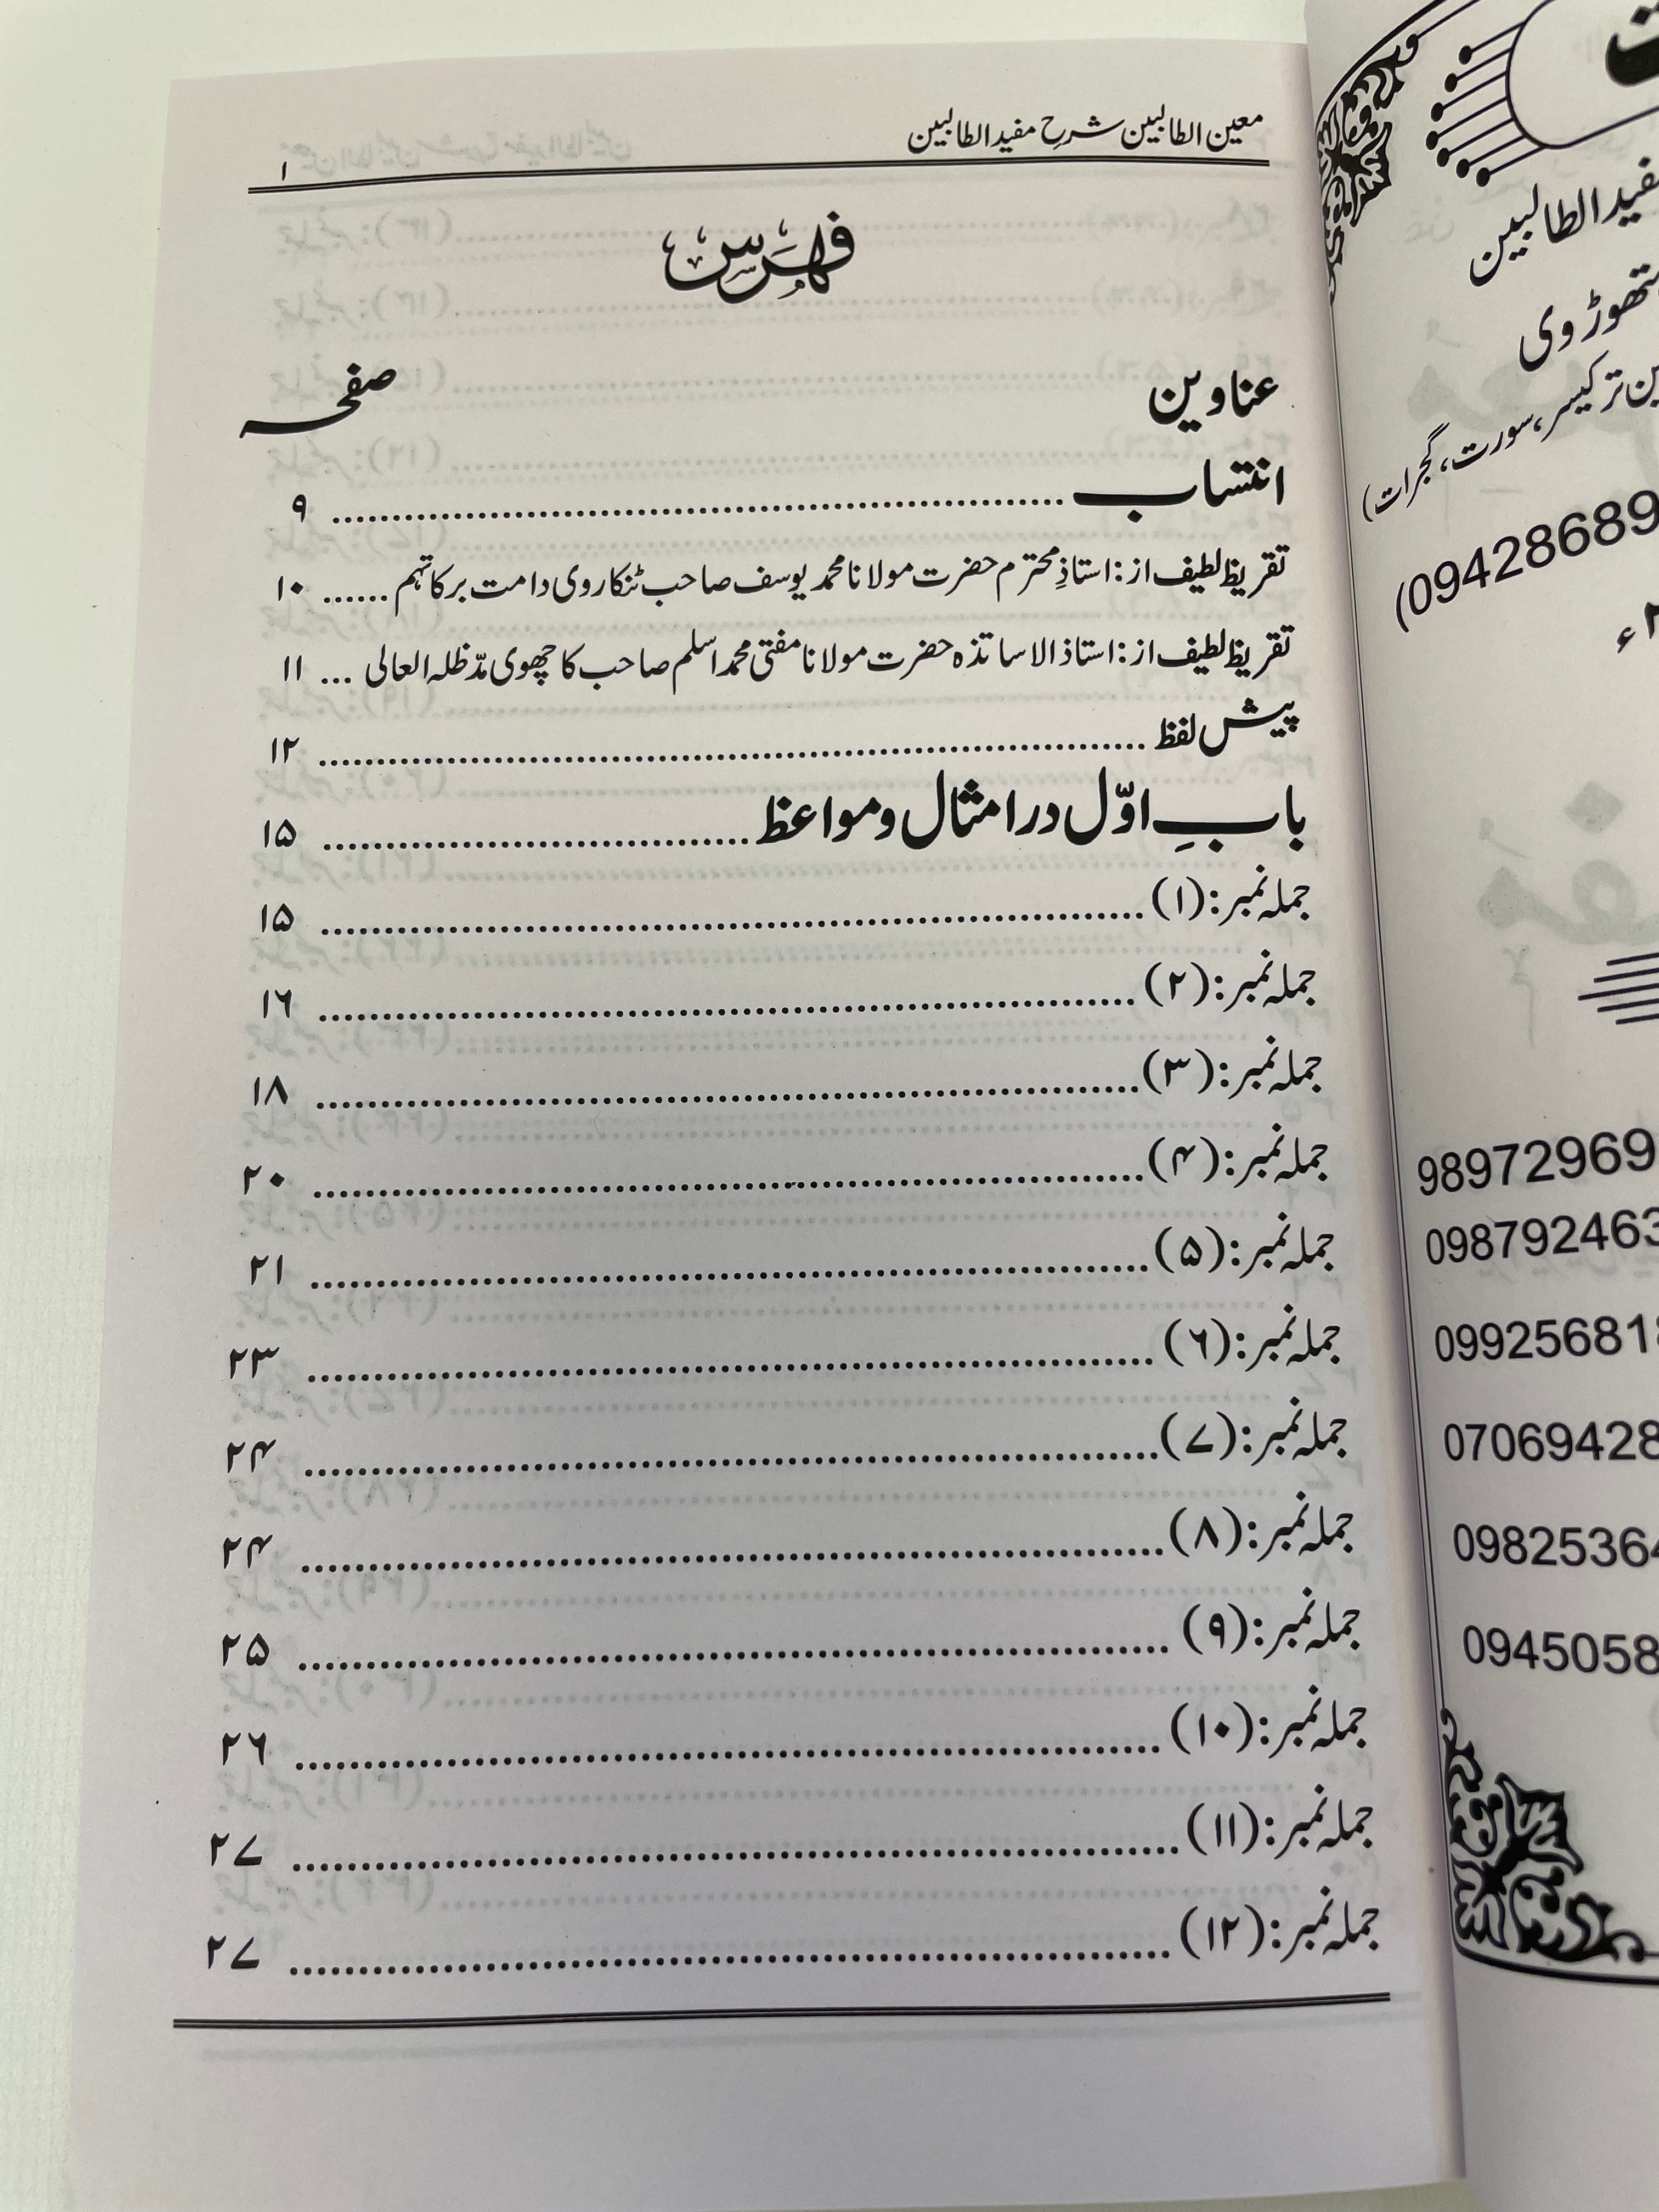 معین الطالبین شرحِ مفید الطالبین ۱
فہرس
عناوین صفحہ
انتساب ........ ۹
تقریظ لطیف از: استاذِ محترم حضرت مولانا محمد یوسف صاحب ٹنکاروی دامت برکاتہم ...... ۱۰
تقریظ لطیف از: استاذ الاساتذہ حضرت مولانا مفتی محمد اسلم صاحب کاچھوی مدّ ظلہ العالی ... ۱۱
پیش لفظ ........ ۱۲
بابِ اوّل در امثال و مواعظ ........ ۱۵
جملہ نمبر: (۱) ........ ۱۵
جملہ نمبر: (۲) ........ ۱۶
جملہ نمبر: (۳) ........ ۱۸
جملہ نمبر: (۴) ........ ۲۰
جملہ نمبر: (۵) ........ ۲۱
جملہ نمبر: (۶) ........ ۲۳
جملہ نمبر: (۷) ........ ۲۴
جملہ نمبر: (۸) ........ ۲۴
جملہ نمبر: (۹) ........ ۲۵
جملہ نمبر: (۱۰) ........ ۲۶
جملہ نمبر: (۱۱) ........ ۲۷
جملہ نمبر: (۱۲) ........ ۲۷
الطالبین
ترکیسر، سورت، گجرات)
(09428689
98972969
098792463
09925681
07069428
09825364
0945058